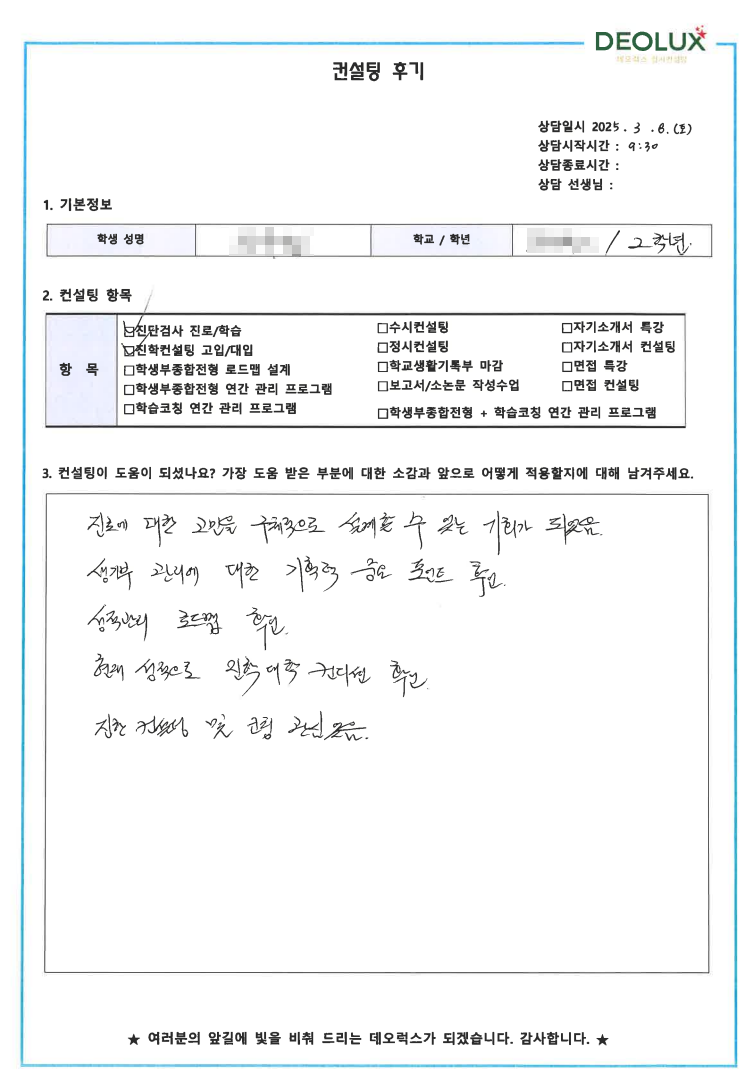 DEOLUX
데오럭스 입시컨설팅
컨설팅 후기
상담일시 2025. 3. 8. (토)
상담시작시간 : 9:30
상담종료시간 :
상담 선생님 :
1. 기본정보
학생 성명 학교 / 학년 / 2학년.
2. 컨설팅 항목
항 목
☑진단검사 진로/학습 □수시컨설팅 □자기소개서 특강
☑진학컨설팅 고입/대입 □정시컨설팅 □자기소개서 컨설팅
□학생부종합전형 로드맵 설계 □학교생활기록부 마감 □면접 특강
□학생부종합전형 연간 관리 프로그램 □보고서/소논문 작성수업 □면접 컨설팅
□학습코칭 연간 관리 프로그램 □학생부종합전형 + 학습코칭 연간 관리 프로그램
3. 컨설팅이 도움이 되셨나요? 가장 도움 받은 부분에 대한 소감과 앞으로 어떻게 적용할지에 대해 남겨주세요.
진로에 대한 고민을 구체적으로 설계할 수 있는 기회가 되었음.
생기부 관리에 대한 기획력 중요 포인트 확인.
성적관리 로드맵 확인.
현재 성적으로 진학 대학 컨디션 확인.
컨설팅 및 코칭 관심있음.
★ 여러분의 앞길에 빛을 비춰 드리는 데오럭스가 되겠습니다. 감사합니다. ★